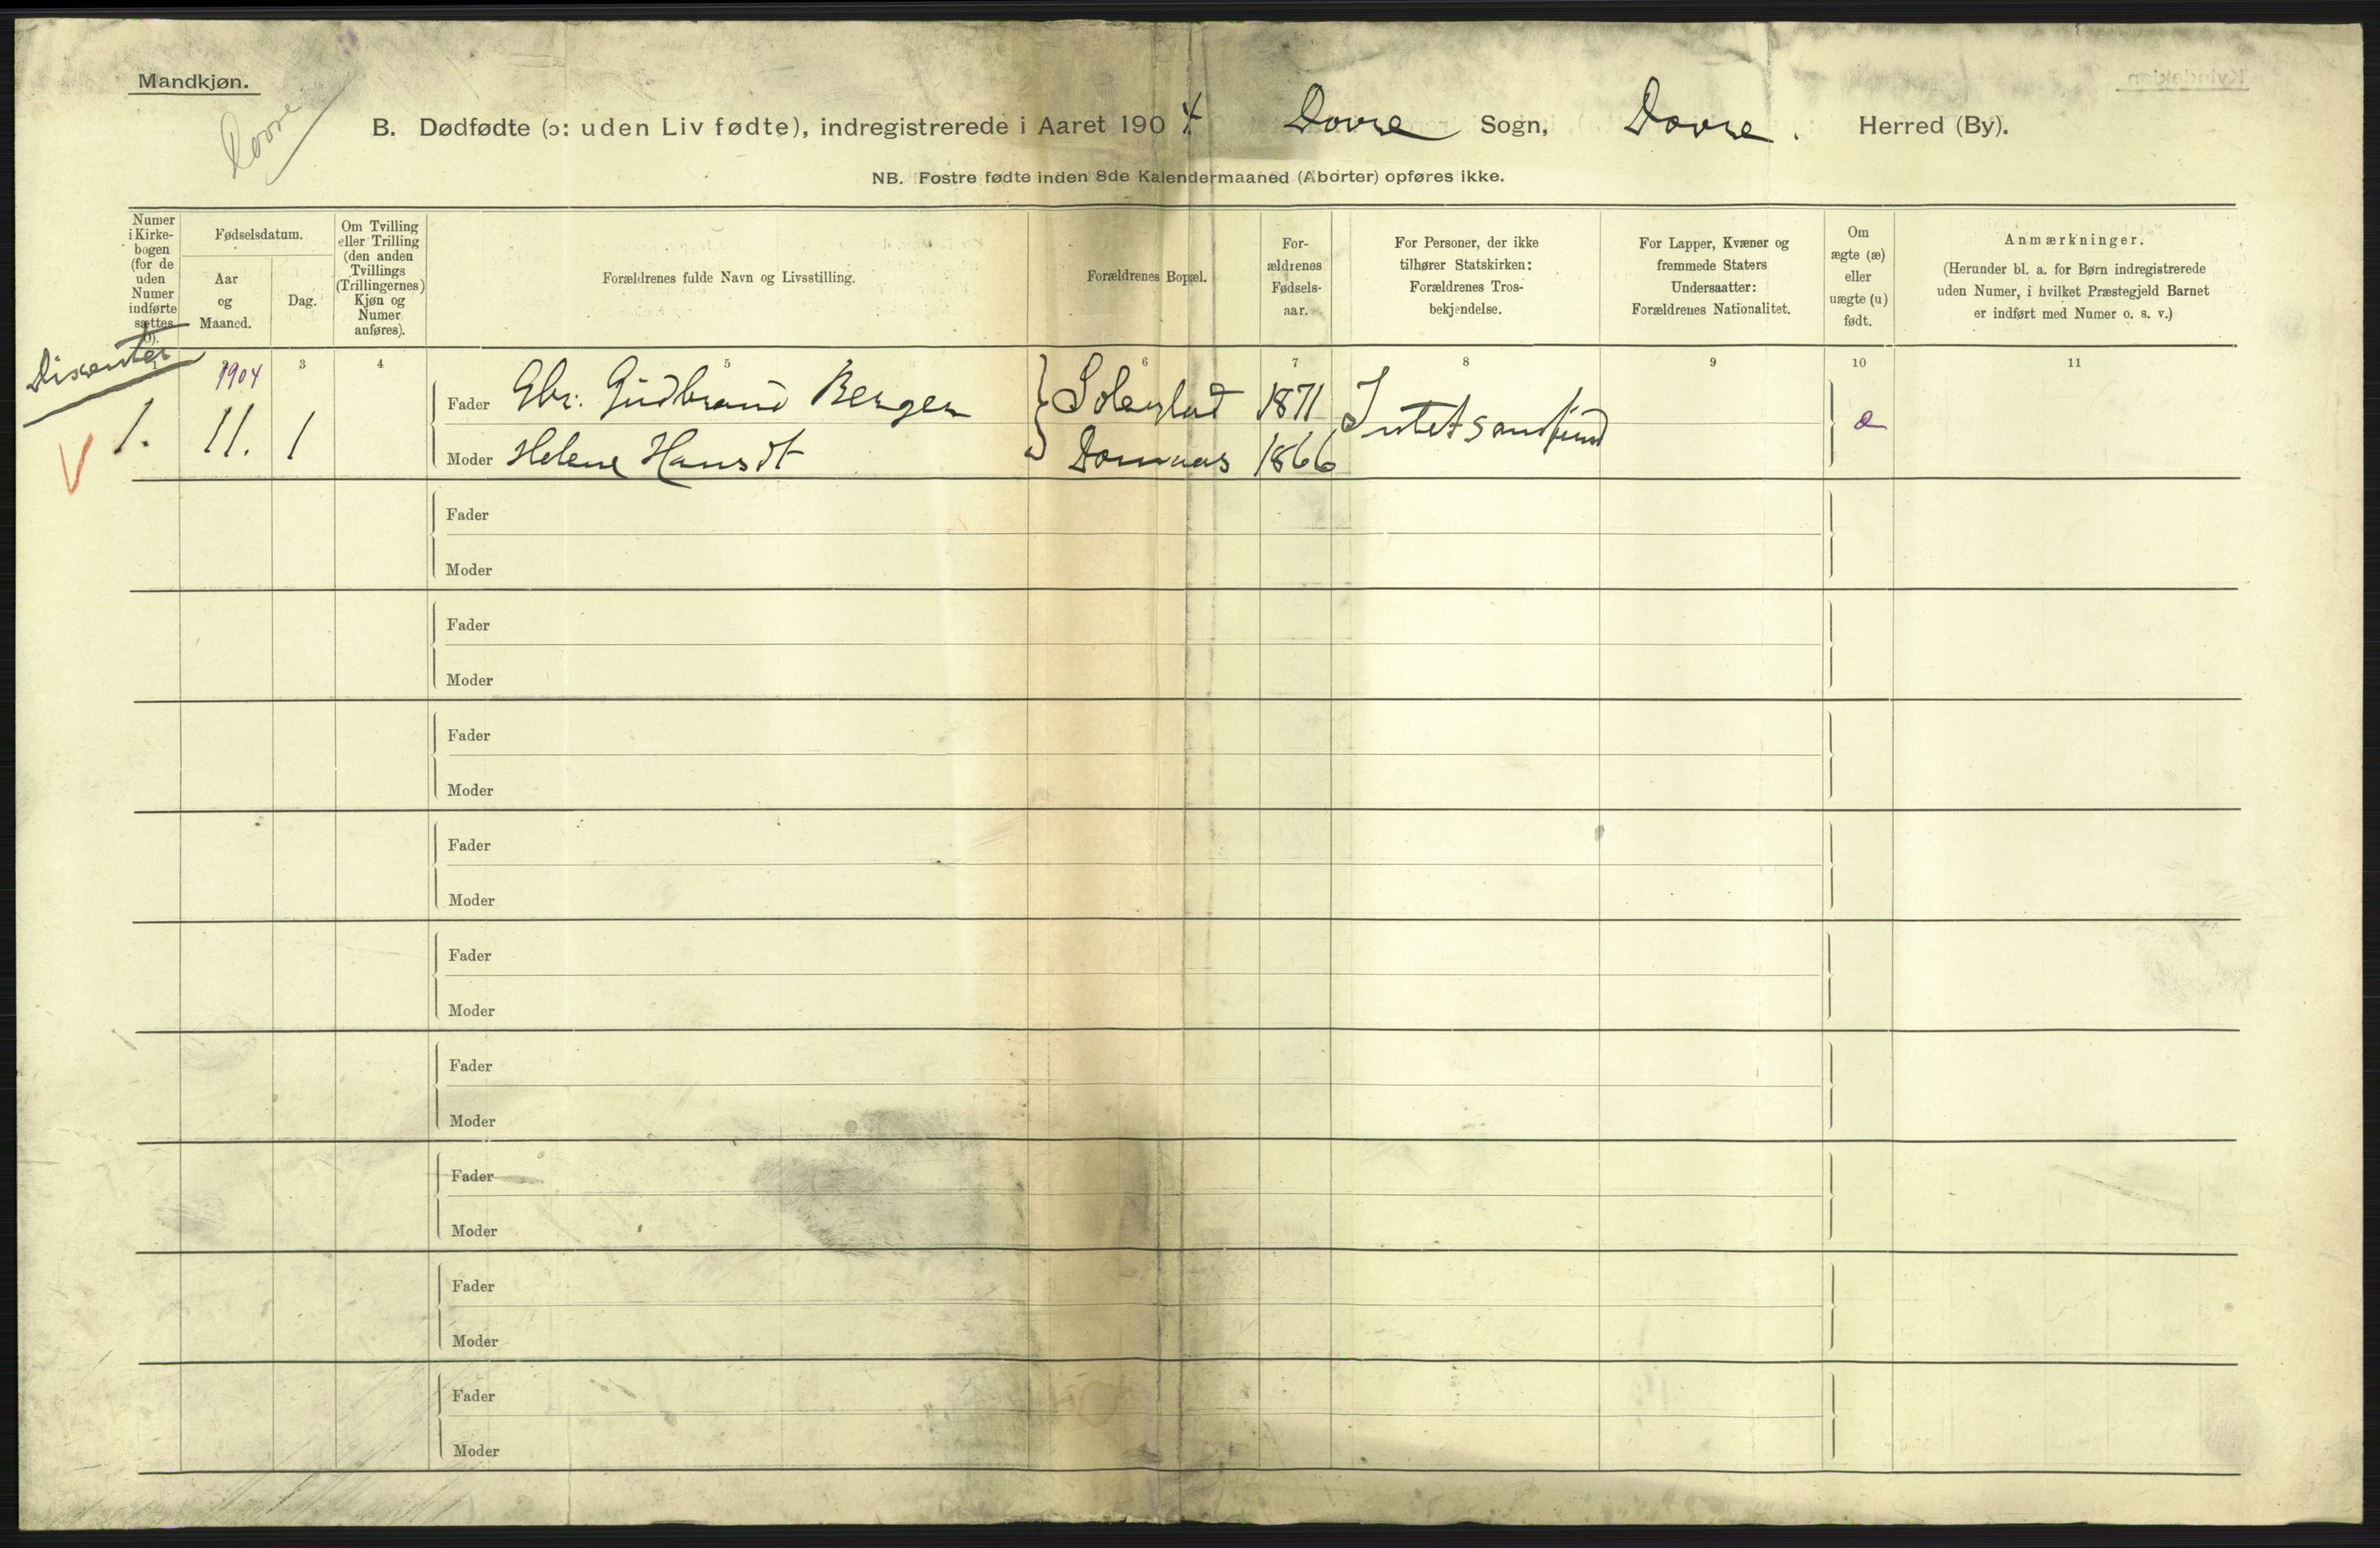 Mandkjøn.
Dovre
B. Dødfødte (ɔ: uden Liv fødte), indregistrerede i Aaret 1904. Dovre Sogn, Dovre. Herred (By).
NB. Fostre fødte inden 8de Kalendermaaned (Aborter) opføres ikke.
Numer
i Kirke-
bogen
(for de
uden
Numer
indførte
sættes
0).
Fødselsdatum.
Aar
og
Maaned.
Dag.
Om Tvilling
eller Trilling
(den anden
Tvillings
(Trillingernes)
Kjøn og
Numer
anføres).
Forældrenes fulde Navn og Livsstilling.
Forældrenes Bopæl.
For-
ældrenes
Fødsels-
aar.
For Personer, der ikke
tilhører Statskirken:
Forældrenes Tros-
bekjendelse.
For Lapper, Kvæner og
fremmede Staters
Undersaatter:
Forældrenes Nationalitet.
Om
ægte (æ)
eller
uægte (u)
født.
Anmærkninger.
(Herunder bl. a. for Børn indregistrerede
uden Numer, i hvilket Præstegjeld Barnet
er indført med Numer o. s. v.)
3 4 5 6 7 8 9 10 11
Dissenter
1904
1. 11. 1
Fader Gudbrand Bergen 1871 Intet samfund æ
Moder Helene Hansdt Dommaas 1866
Fader
Moder
Fader
Moder
Fader
Moder
Fader
Moder
Fader
Moder
Fader
Moder
Fader
Moder
Fader
Moder
Fader
Moder